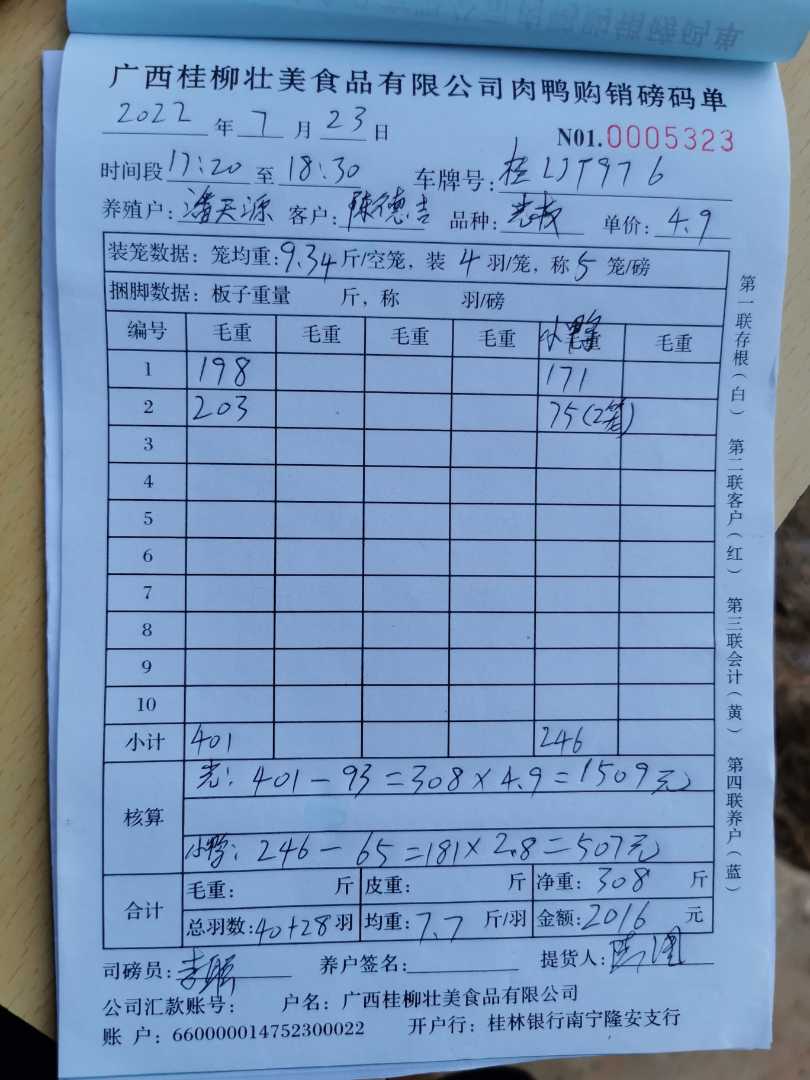 广西桂柳壮美食品有限公司肉鸭购销磅码单
2022年7月23日 N01.0005323
时间段17:20至18:30 车牌号:桂LJT976
养殖户:潘天源 客户:陈德吉 品种:光板 单价:4.9
装笼数据:笼均重:9.34斤/空笼,装4羽/笼,称5笼/磅
捆脚数据:板子重量 斤,称 羽/磅
编号 毛重 毛重 毛重 毛重 小鸭毛重 毛重
1 198 171
2 203 75(2笼)
3
4
5
6
7
8
9
10
小计 401 246
核算 光:401-93=308×4.9=1509元
小鸭:246-65=181×2.8=507元
合计 毛重: 斤 皮重: 斤 净重:308斤
总羽数:40+28羽 均重:7.7斤/羽 金额:2016元
司磅员: 养户签名: 提货人:
公司汇款账号: 户名:广西桂柳壮美食品有限公司
账 户:660000014752300022 开户行:桂林银行南宁隆安支行
第一联存根(白) 第二联客户(红) 第三联会计(黄) 第四联养户(蓝)